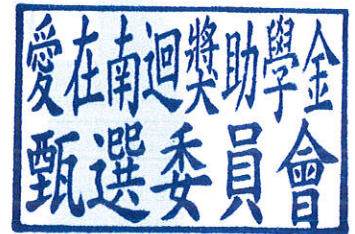 愛在南迴獎助學金
甄選委員會